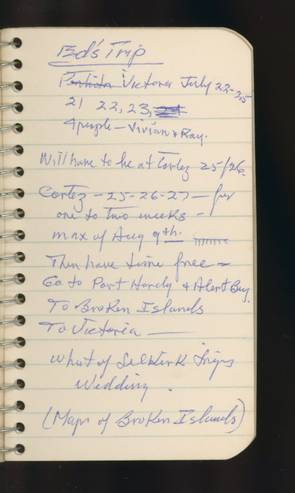 Ed's Trip
Victoria July 22-25
21 22, 23,
4 people - Vivian & Ray.
Will have to be at Cortez 25/26
Cortez - 25-26-27 - for
one to two weeks -
max of Aug 9th.
Then have time free -
Go to Port Hardy & Alert Bay
To Broken Islands
To Victoria
What of Selkirk Trips
Wedding.
(Maps of Broken Islands)